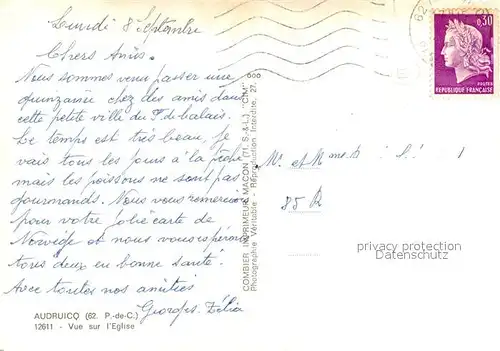 Lundi 8 Septembre
Chers Amis.
Nous sommes venu passer une
quinzaine chez des amis dans
cette petite ville du P. de Calais.
Le temps est très beau, je
vais tous les jours à la pêche
mais les poissons ne sont pas
gourmands. Nous vous remercions
pour votre jolie carte de
Norvège et nous vous espérons
tous deux en bonne santé.
Avec toutes nos amitiés
Georges. Zélia
AUDRUICQ (62. P.-de-C.)
12611 - Vue sur l'Eglise
COMBIER IMPRIMEUR MACON (71. S-&-L.) "CIM"
Photographie Véritable - Reproduction Interdite. 27.
0,30
POSTES
REPUBLIQUE FRANÇAISE
62
Mr et Mme
85 R
privacy protection
Datenschutz